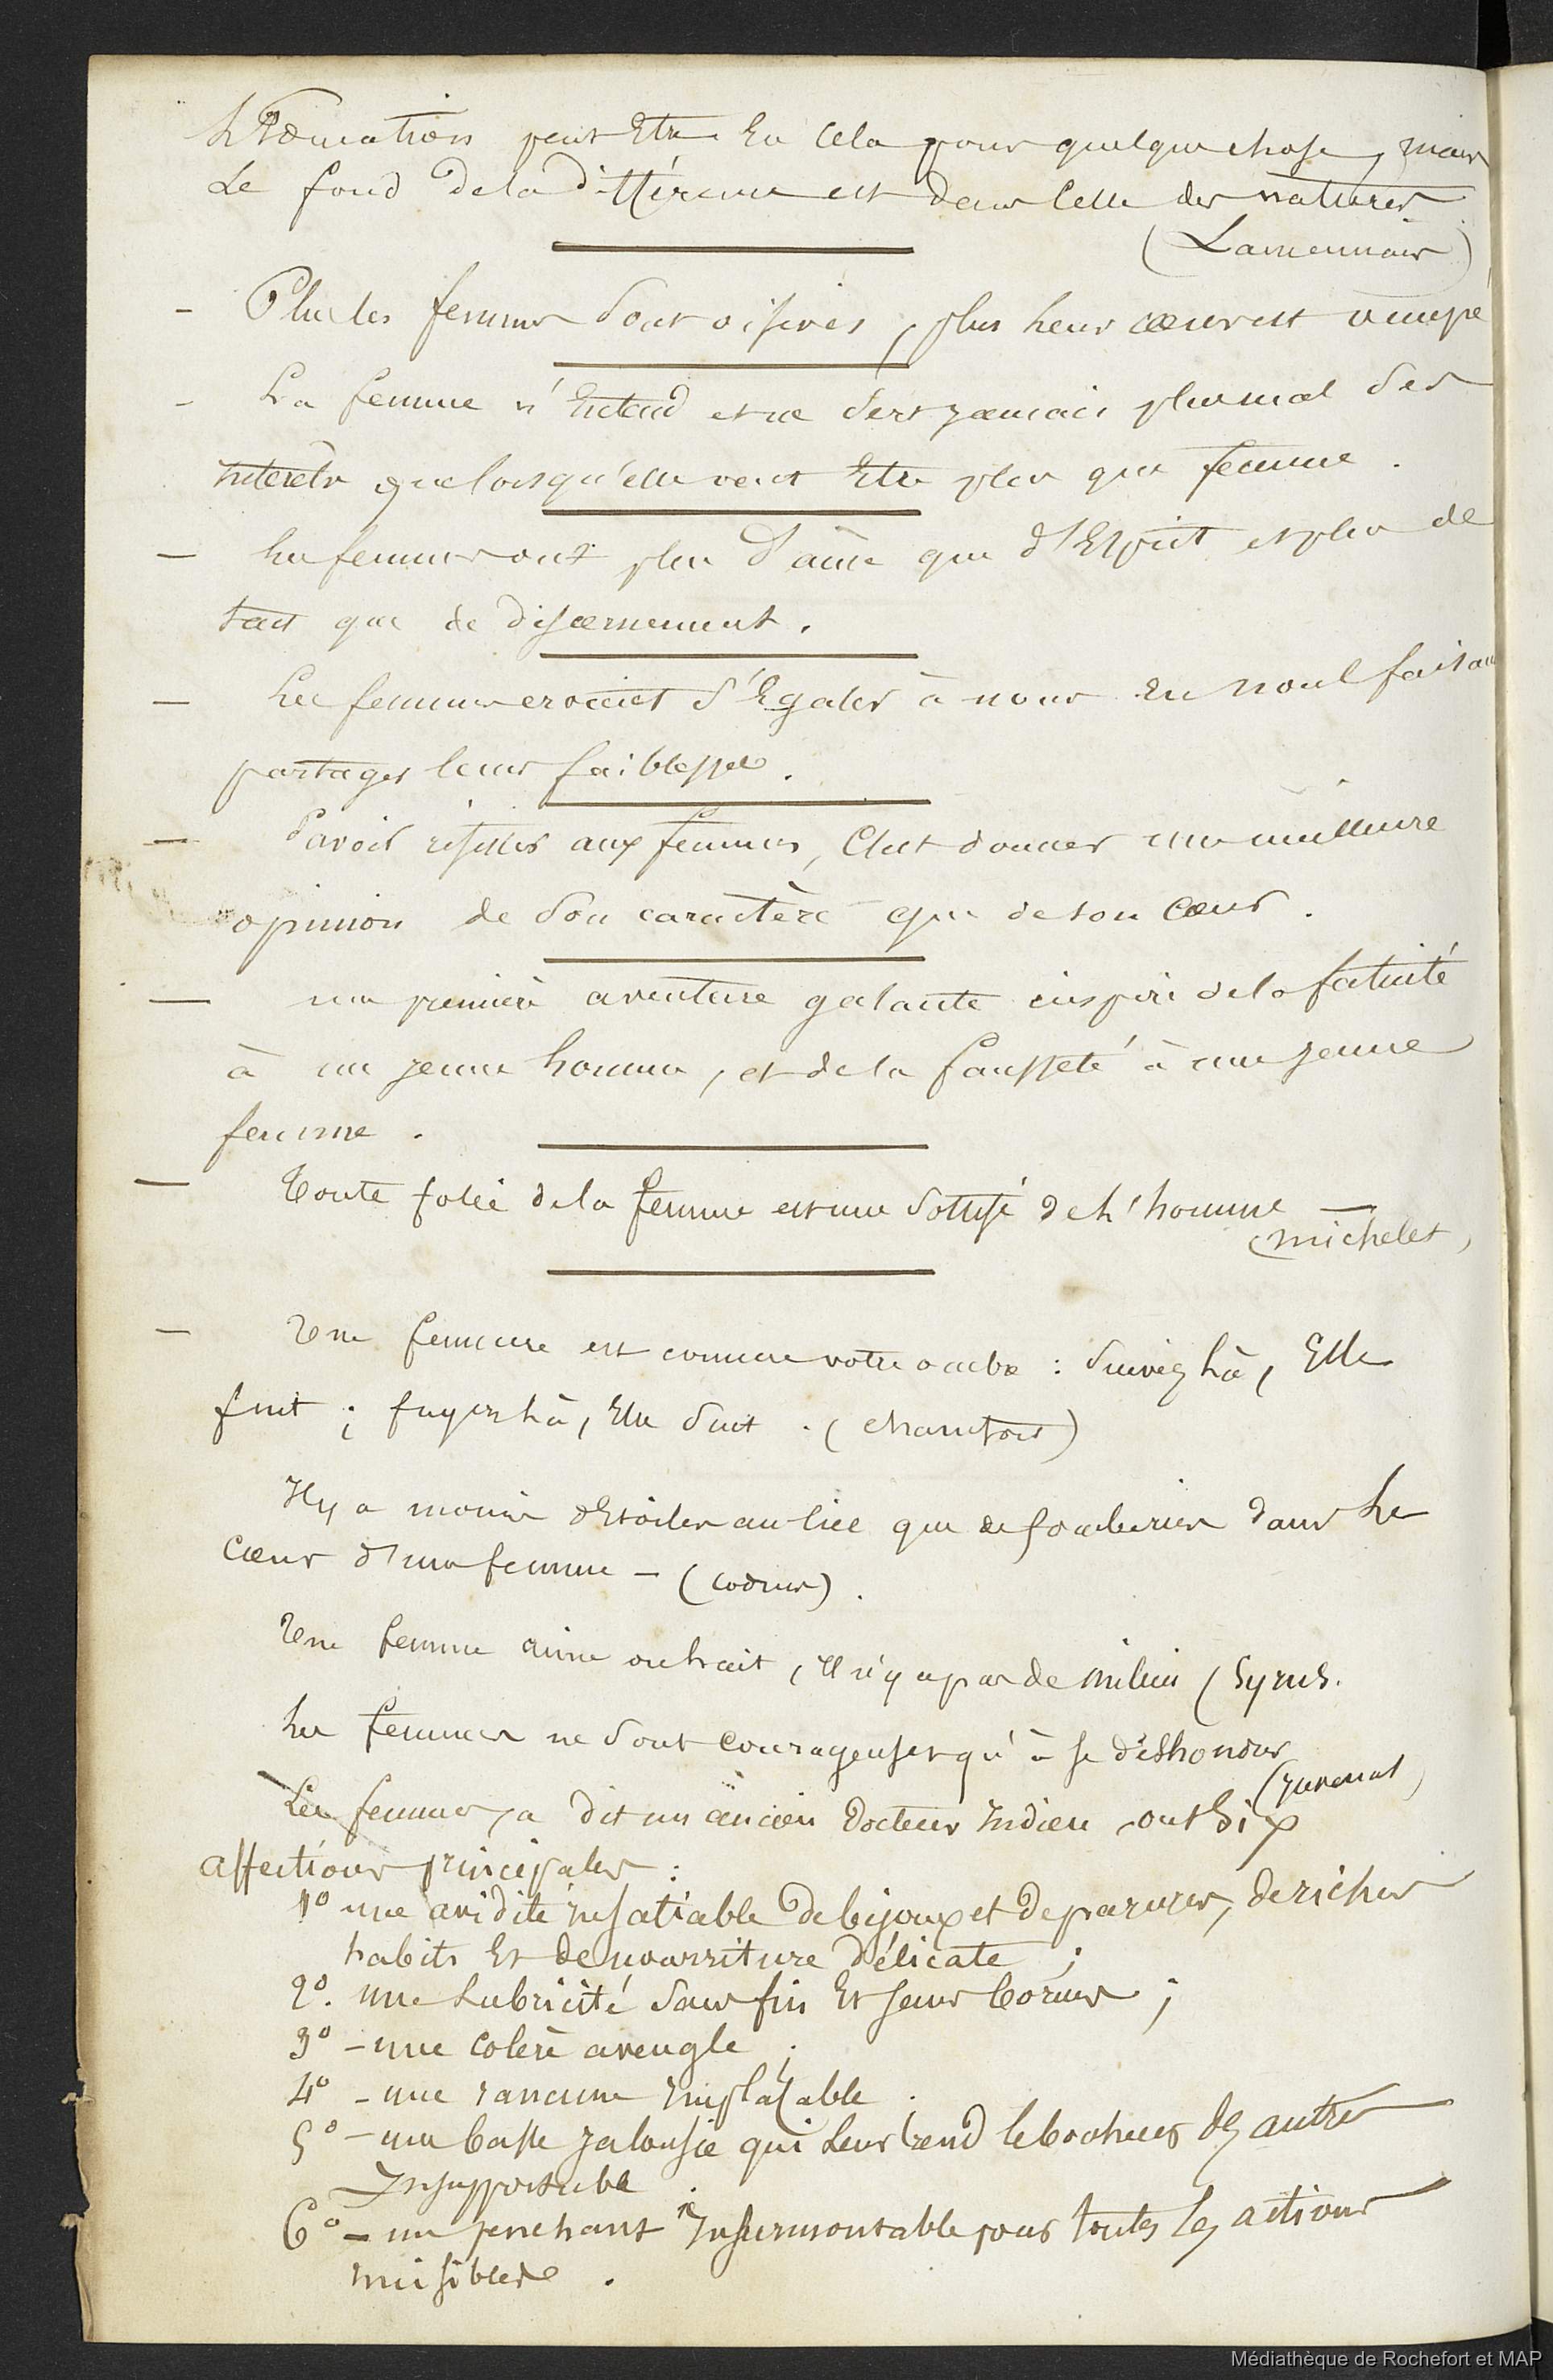 L'Education peut Etre En Cela pour quelque chose, mais
Le fond de la différence est dans Celle des natures
(Lamennais)
- Plus les femmes Sont oisives, plus leur cœur est occupé
- La femme n'Entend et ne Sert jamais plus mal Ses
interets que lorsqu'elle veut Etre plus que femme.
- Les femmes ont plus d'âme que d'Esprit et plus de
tact que de discernement.
- Les femmes croient S'Egaler à nous En nous faisant
partager leurs faiblesses.
- Savoir résister aux femmes, C'est donner une meilleure
opinion de Son caractère que de son Cœur.
- une première aventure galante inspire de la fatuité
à un jeune homme, et de la fausseté à une jeune
femme.
- Toute folie de la femme est une Sottise de L'homme -
(michelet)
- Une femme est comme votre ombre : Suivez là, Elle
fuit ; fuyez là, Elle Suit. (chamfort)
Il y a moins d'Etoiles au Ciel que de fourberies dans Le
Cœur d'une femme - (Codrus).
Une femme aime ou hait, Il n'y a pas de milieu (Syrus.
Les femmes ne Sont Courageuses qu'à se déshonorer
(juvenal)
Les femmes, a dit un ancien Docteur Indien, ont Six
affections principales :
1º une avidité insatiable de bijoux et de parures, de riches
habits Et de nourriture délicate ;
2º. une Lubricité Sans fin Et Sans bornes ;
3º - une colère aveugle ;
4º - une rancune implacable.
5º - une basse jalousie qui Leur rend le bonheur des autres
Insupportable.
6º - un penchant Insurmontable pour toutes les actions
nuisibles.
Médiathèque de Rochefort et MAP